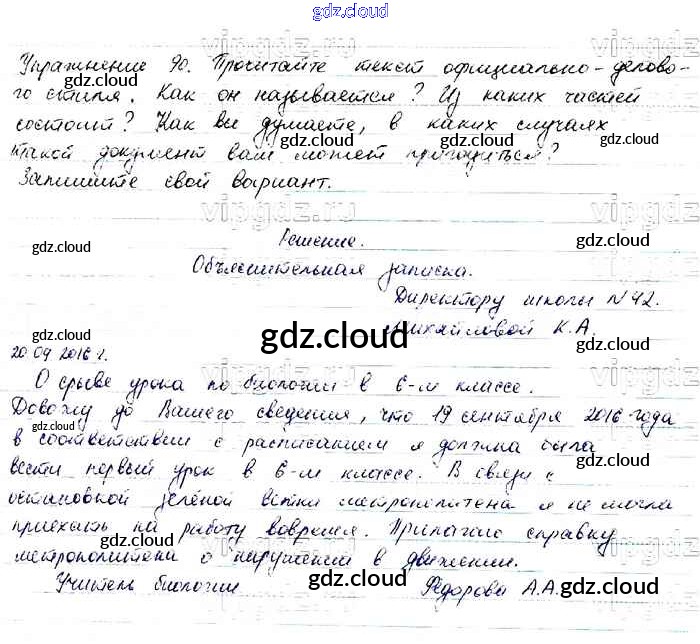 gdz.cloud
vipgdz.ru
Упражнение 90. Прочитайте текст официально-делово-
gdz.cloud gdz.cloud
го стиля. Как он называется? Из каких частей
состоит? Как вы думаете, в каких случаях
gdz.cloud gdz.cloud
такой документ вам может пригодиться?
Запишите свой вариант.
vipgdz.ru vipgdz.ru
Решение.
gdz.cloud gdz.cloud
Объяснительная записка.
Директору школы N 42.
gdz.cloud
Михайловой К.А.
gdz.cloud gdz.cloud
20.09 2016 г.
О срыве урока по биологии в 6-м классе.
vipgdz.ru
Довожу до Вашего сведения, что 19 сентября 2016 года
gdz.cloud gdz.cloud
в соответствии с расписанием я должна была
вести первый урок в 6-м классе. В связи с
остановкой зелёной ветки метрополитена я не могла
приехать на работу вовремя. Прилагаю справку
gdz.cloud gdz.cloud
метрополитена о нарушении в движении.
Учитель биологии Федорова А.А.
gdz.cloud gdz.cloud